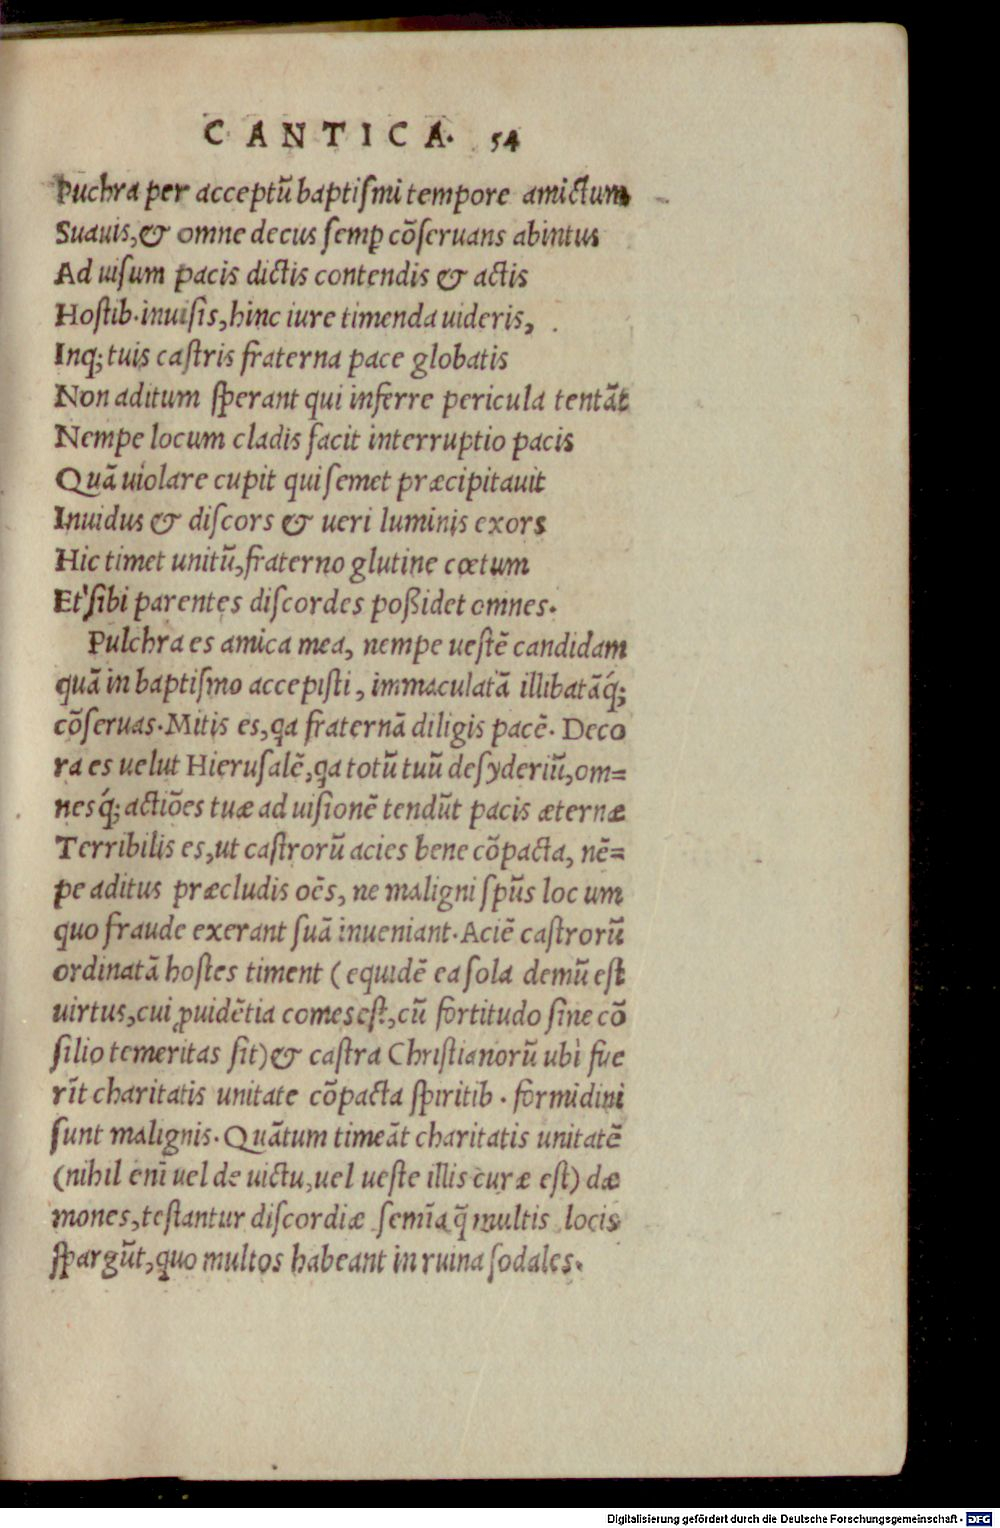 CANTICA. 54
Puchra per acceptū baptiſmi tempore amictum
Suauis, & omne decus ſemꝑ cōſeruans abintus
Ad uiſum pacis dictis contendis & actis
Hoſtib. inuiſis, hinc iure timenda uideris,
Inq; tuis caſtris fraterna pace globatis
Non aditum ſperant qui inferre pericula tentāt
Nempe locum cladis facit interruptio pacis
Quā uiolare cupit qui ſemet præcipitauit
Inuidus & diſcors & ueri luminis exors
Hic timet unitū, fraterno glutine cœtum
Et ſibi parentes diſcordes poßidet omnes.
Pulchra es amica mea, nempe ueſtē candidam
quā in baptiſmo accepiſti, immaculatā illibatāq́;
cōſeruas. Mitis es, qa fraternā diligis pacē. Deco
ra es uelut Hieruſalē, qa totū tuū deſyderiū, om=
nesq́; actiōes tuæ ad uiſionē tendūt pacis æternæ
Terribilis es, ut caſtrorū acies bene cōpacta, nē=
pe aditus præcludis oēs, ne maligni ſpūs loc um
quo fraude exerant ſuā inueniant. Aciē caſtrorū
ordinatā hoſtes timent (equidē ea ſola demū eſt
uirtus, cui ꝓuidētia comes eſt, cū fortitudo ſine cō
ſilio temeritas ſit) & caſtra Chriſtianorū ubi fue
rīt charitatis unitate cōpacta ſpiritib. formidini
ſunt malignis. Quātum timeāt charitatis unitatē
(nihil enī uel de uictu, uel ueſte illis curæ eſt) dæ
mones, teſtantur diſcordiæ ſemīa q̄ multis locis
ſpargūt, quo multos habeant in ruina ſodales.
Digitalisierung gefördert durch die Deutsche Forschungsgemeinschaft - DFG